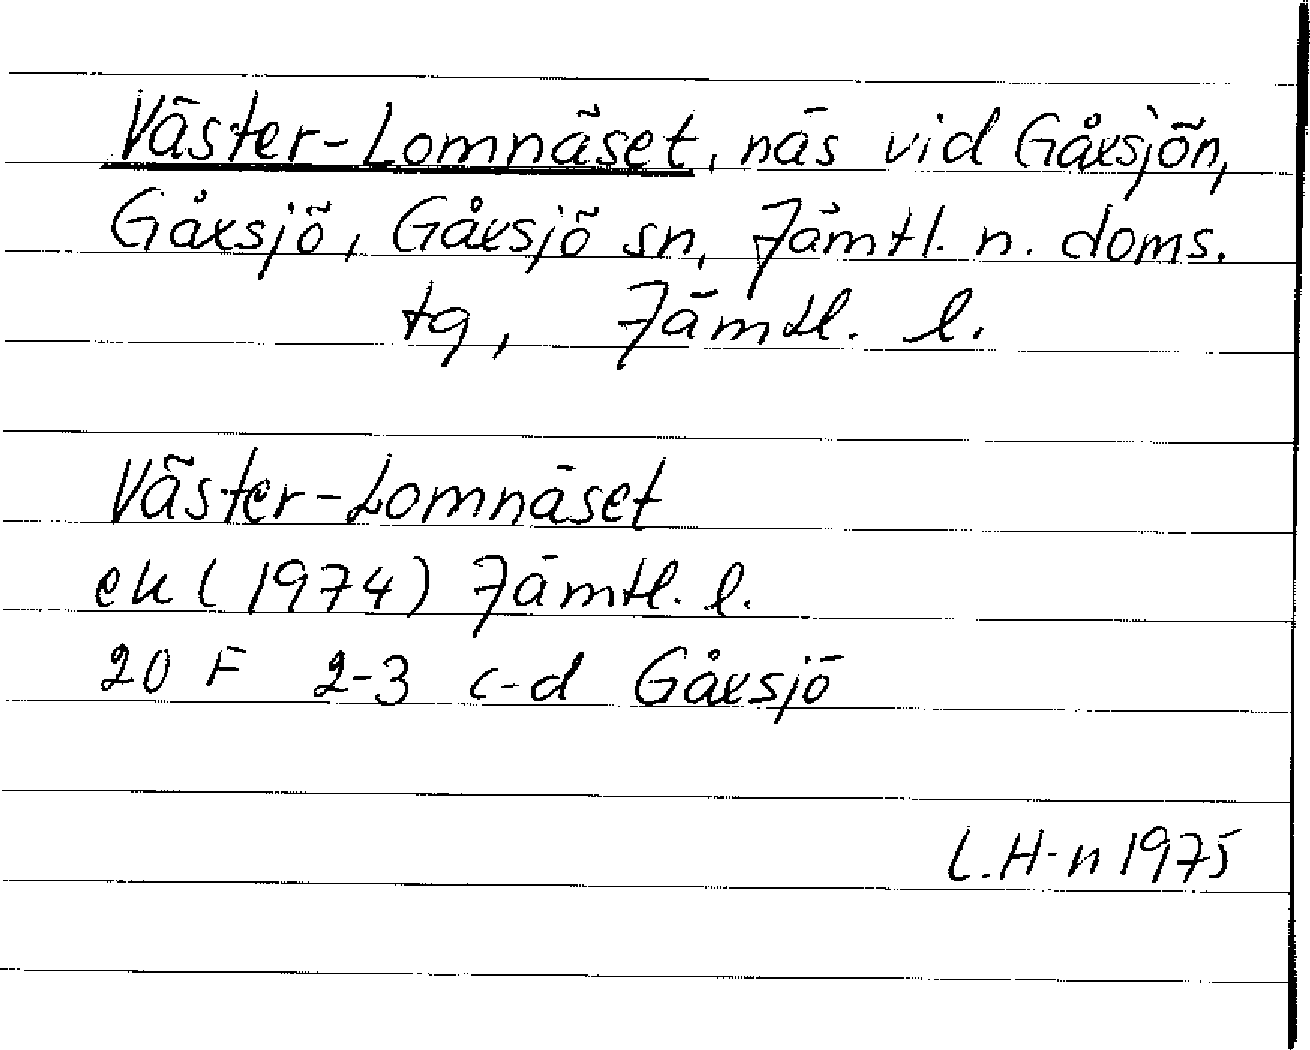 Väster-Lomnäset, näs vid Gåxsjön,
Gåxsjö, Gåxsjö sn, Jämtl. n. doms.
tg, Jämtl. l.
Väster-Lomnäset
ek (1974) Jämtl. l.
20 F 2-3 c-d Gåxsjö
L.H-n 1975